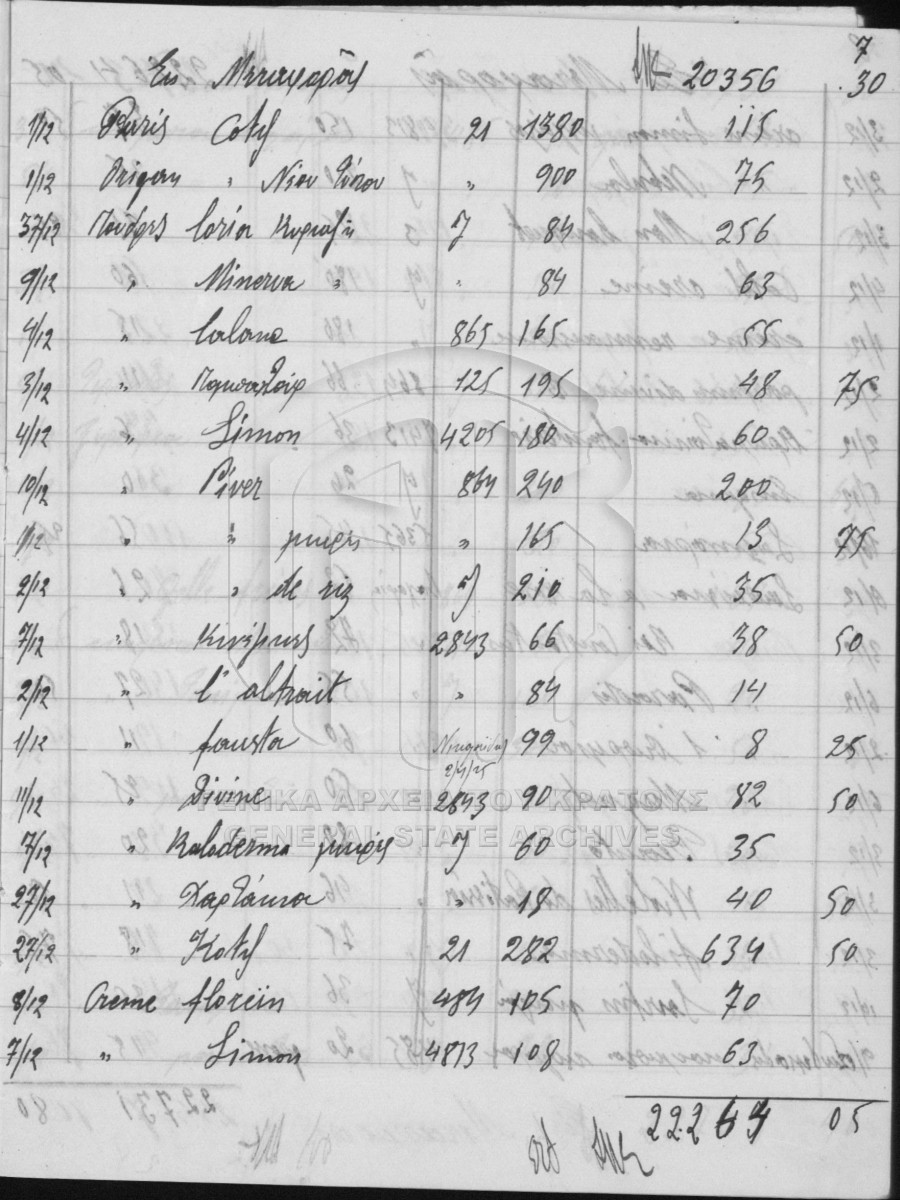 7
Εκ Μεταφορᾶς 20356 30
1/12 Paris Coty 21 1380 115
1/12 Origan " Νέου τύπου " 900 75
37/12 Πούδρες Loria Κυριαζῆ J 84 256
9/12 " Minerva " " 84 63
4/12 " 865 165 55
3/12 " 125 195 48 75
4/12 " Simon 4205 180 60
10/12 " Piver 864 240 200
1/12 " " μικρές " 165 13 75
2/12 " " de riz J 210 35
7/12 " 2843 66 38 50
2/12 " l'altrait " 84 14
1/12 " fausta 99 8 25
11/12 " Divine 2843 90 82 50
7/12 " Kaloderma μικρές J 60 35
27/12 " Χαρτάκια " 18 40 50
27/12 " Koty 21 282 634 50
8/12 Creme floreiin 484 105 70
7/12 " Simon 4813 108 63
22264 05
ΓΕΝΙΚΑ ΑΡΧΕΙΑ ΤΟΥ ΚΡΑΤΟΥΣ
GENERAL STATE ARCHIVES